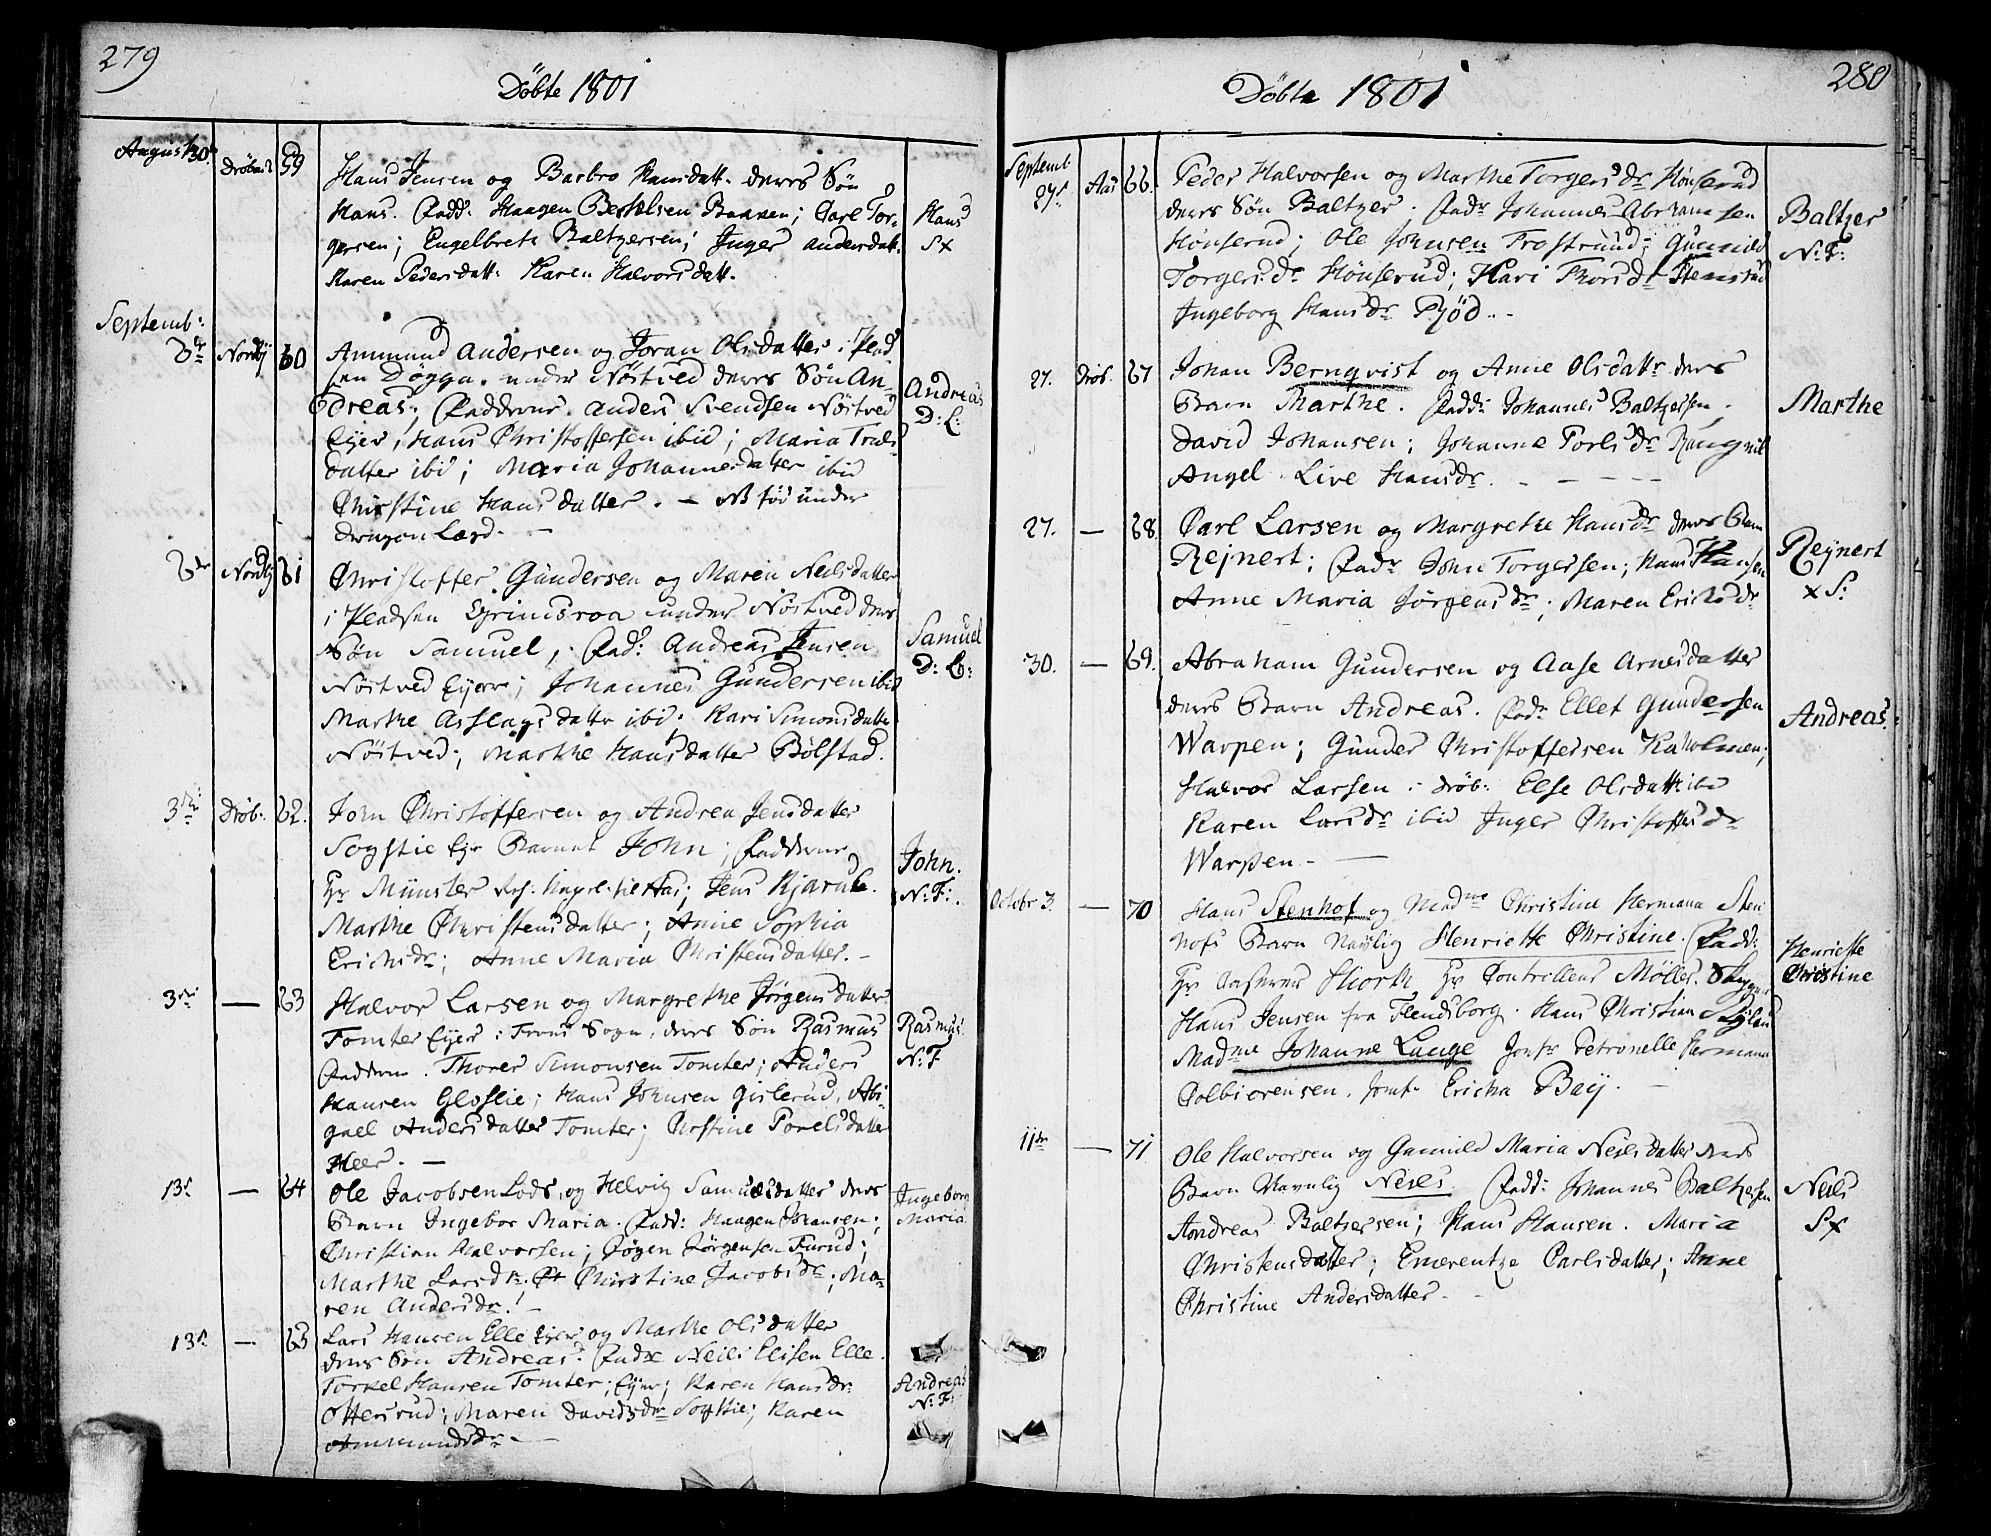 279
Döbte 1801
August 30
Dröbak
59
Hans Jensen og Barbro Hansdatt. deres Sön
Hans. Fadd: Haagen Bertelsen Bakken; Carl Tor-
gersen; Engelbret Baltzersen; Inger Andersdatt.
Karen Pedersdatt: Karen Halvorsdatt.
Hans
S x
Septemb:
Nordby
60
Ammund Andersen og Joran Olsdatter i Plad
sen Dögga under Nöstved deres Sön An-
dreas; Fadderne. Anders Svendsen Nöstved
Ejer; Hans Christoffersen ibid; Maria Truls
datter ibid; Maria Johannesdatter ibid
Christine Hansdatter. — NB föd under
dragon Lægd. —
Andreas
D: L:
Nordby
61
Christoffer Gundersen og Maren Neilsdatter
i Pladsen Egrimsroa under Nöstved deres
Sön Samuel, Fad: Andreas Jensen
Nöstved Ejer; Johannes Gundersen ibid
Marthe Asslagsdattr ibi: Kari Simonsdatter
Nöstved; Marthe Hansdatter Bölstad.
Samuel
D: L:
3die
Dröb:
62.
John Christoffersen og Andrea Jensdatter
Sogstie Ejr Barnet John; Fadderne
Hr Münster
Aas; Jens
Marthe Christensdatter; Anne Sophia
Erichsdr; Anne Maria Christensdatter. —
John.
N: F:
3die
—
63
Halvor Larsen og Margrethe Jörgensdatter
Tomter Ejer i Frons Sogn, deres Sön Rasmus
Fadderne. Thorer Simonsen Tomter; Anders
Hansen Gloslie; Hans Johnsen Gislerud, Abi-
gael Andersdatter Tomter; Christine Povelsdatter
Heer. —
Rasmus
N: F
13de
—
64
Ole Jacobsen Lods, og Helvig Samuelsdatter deres
Barn Ingebor Maria. Fadd: Haagen Johansen;
Christian Halvorsen; Jögen Jörgensen Furud;
Marthe Larsdr; Christine Jacobsdr; Ma-
ren Andersdr. —
Ingeborg
Maria
13de
—
65
Lars Hansen Elle Ejer og Marthe Olsdatter
deres Sön Andreas. Faddr Neils Elisen Elle
Torkel Hansen Tomter; Ejer; Karen Hansdr
Ottersrud; Maren Davidsdr Sogstie; Karen
Ammundsdr. —
Andreas
N: F:
280
Döbte 1801
Septemb
27de
Aas
66.
Peder Halvorsen og Marthe Torgersdr Hönserud
deres Sön Baltzer. Fadr Johannes Abrahamsen
Hönserud; Ole Johnsen Frostrund; Gunnild
Torgersdr Hönserud; Kari Thorsdr Stamstad
Ingeborg Hansdr Pjöd. -
Baltzer
N: F:
27.
Dröb.
67
Johan Bernqvist og Anne Olsdattr deres
Barn Marthe. Fadd: Johannes Baltzersen,
David Johansen; Johanne Torlsdr Rangnil
Angel. Live Hansdr. - - - -
Marthe
27.
—
68.
Carl Larsen og Margrethe Hansdr deres Barn
Rejnert; Fadr John Torgersen; Hans Hansen
Anne Maria Jörgensdr; Maren Erichsdr
Rejnert
x S:
30.
—
69.
Abraham Gundersen og Aase Arnesdatter
deres Barn Andreas. Fadr Ellet Gundersen
Warpen; Gunder Christoffersen Kaholmen;
Halvor Larsen i Dröb: Else Olsdatt: ibd
Karen Larsdr ibid Inger Christoffersdr
Warpen. —
Andreas.
Octobr 3.
—
70
Hans Stenhof og Madme Christine Hermana Sten
hofs Barn Navlig Henriette Christine. Fadd:
Hr Hiorth Hr Controlleur Möller.
Hans Jensen fra Flendsborg. Hans Christian
Madme Johanne Lange Jomfr Petronelle Hermana
Colbiörensen. Jomfr Ericha Bay. —
Henriette
Christine
11te
—
71
Ole Halvorsen og Gunnild Maria Neilsdatter deres
Barn Navnlig Neils Fadd: Johannes Baltzersen
Andreas Baltzersen; Hans Hansen. Maria
Christensdatter; Emerentze Carlsdatter; Anne
Christine Andersdatter. -
Neils
S x